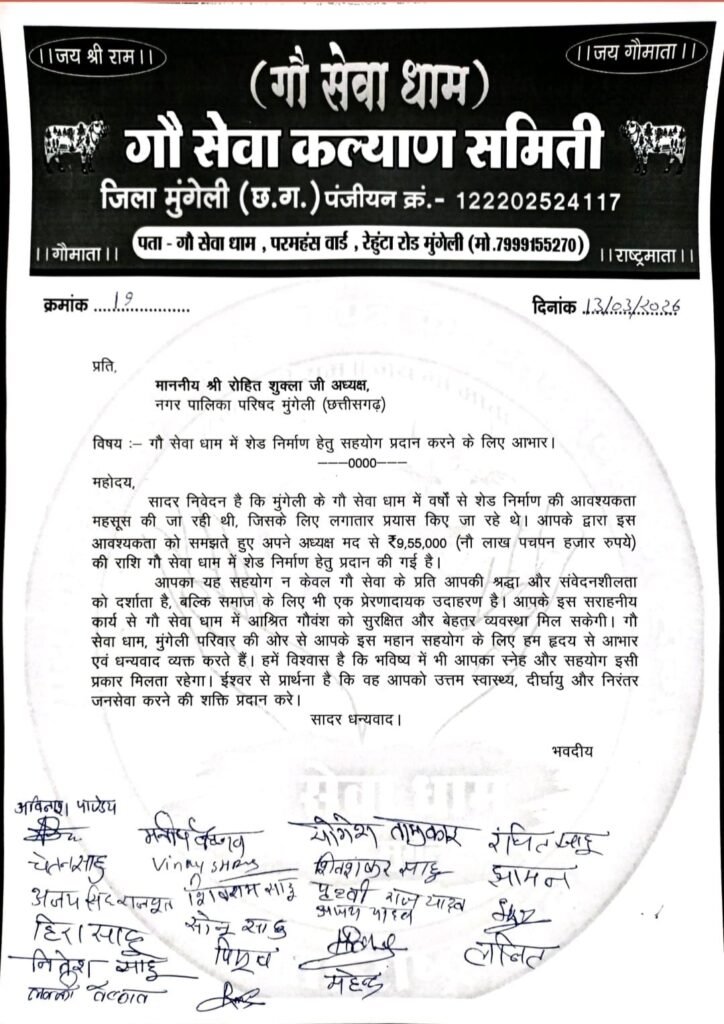 ।।जय श्री राम।।
।।जय गौमाता।।
(गौ सेवा धाम)
गौ सेवा कल्याण समिती
जिला मुंगेली (छ.ग.) पंजीयन क्रं.- 122202524117
।।गौमाता।।
पता - गौ सेवा धाम , परमहंस वार्ड , रेहुंटा रोड मुंगेली (मो.7999155270)
।।राष्ट्रमाता।।
क्रमांक ...19...
दिनांक .13/03/2026
प्रति,
माननीय श्री रोहित शुक्ला जी अध्यक्ष,
नगर पालिका परिषद मुंगेली (छत्तीसगढ़)
विषय :– गौ सेवा धाम में शेड निर्माण हेतु सहयोग प्रदान करने के लिए आभार।
–––0000–––
महोदय,
सादर निवेदन है कि मुंगेली के गौ सेवा धाम में वर्षो से शेड निर्माण की आवश्यकता
महसूस की जा रही थी, जिसके लिए लगातार प्रयास किए जा रहे थे। आपके द्वारा इस
आवश्यकता को समझते हुए अपने अध्यक्ष मद से ₹9,55,000 (नौ लाख पचपन हजार रुपये)
की राशि गौ सेवा धाम में शेड निर्माण हेतु प्रदान की गई है।
आपका यह सहयोग न केवल गौ सेवा के प्रति आपकी श्रद्धा और संवेदनशीलता
को दर्शाता है, बल्कि समाज के लिए भी एक प्रेरणादायक उदाहरण है। आपके इस सराहनीय
कार्य से गौ सेवा धाम में आश्रित गौवंश को सुरक्षित और बेहतर व्यवस्था मिल सकेगी। गौ
सेवा धाम, मुंगेली परिवार की ओर से आपके इस महान सहयोग के लिए हम हृदय से आभार
एवं धन्यवाद व्यक्त करते हैं। हमें विश्वास है कि भविष्य में भी आपका स्नेह और सहयोग इसी
प्रकार मिलता रहेगा। ईश्वर से प्रार्थना है कि वह आपको उत्तम स्वास्थ्य, दीर्घायु और निरंतर
जनसेवा करने की शक्ति प्रदान करे।
सादर धन्यवाद।
भवदीय
सेवा धाम
अविनाश पाण्डेय
योगेश ताम्रकार
चेतन साहू
शिवशंकर साहू
झामन
शिवराम साहू
पृथ्वी राज यादव
अजय यादव
हिरा साहू
सोनू साहू
नितेश साहू
ललित
महेन्द्र